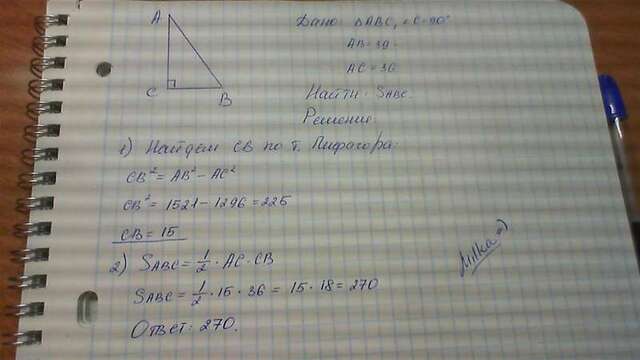 A
C
B
Дано: ΔABC, ∠C=90°
AB=39
AC=36
Найти: SABC.
Решение:
1) Найдем CB по т. Пифагора:
CB² = AB² - AC²
CB² = 1521 - 1296 = 225
CB = 15
2) SABC = 1/2 · AC · CB
SABC = 1/2 · 15 · 36 = 15 · 18 = 270
Ответ: 270.
Milka =)